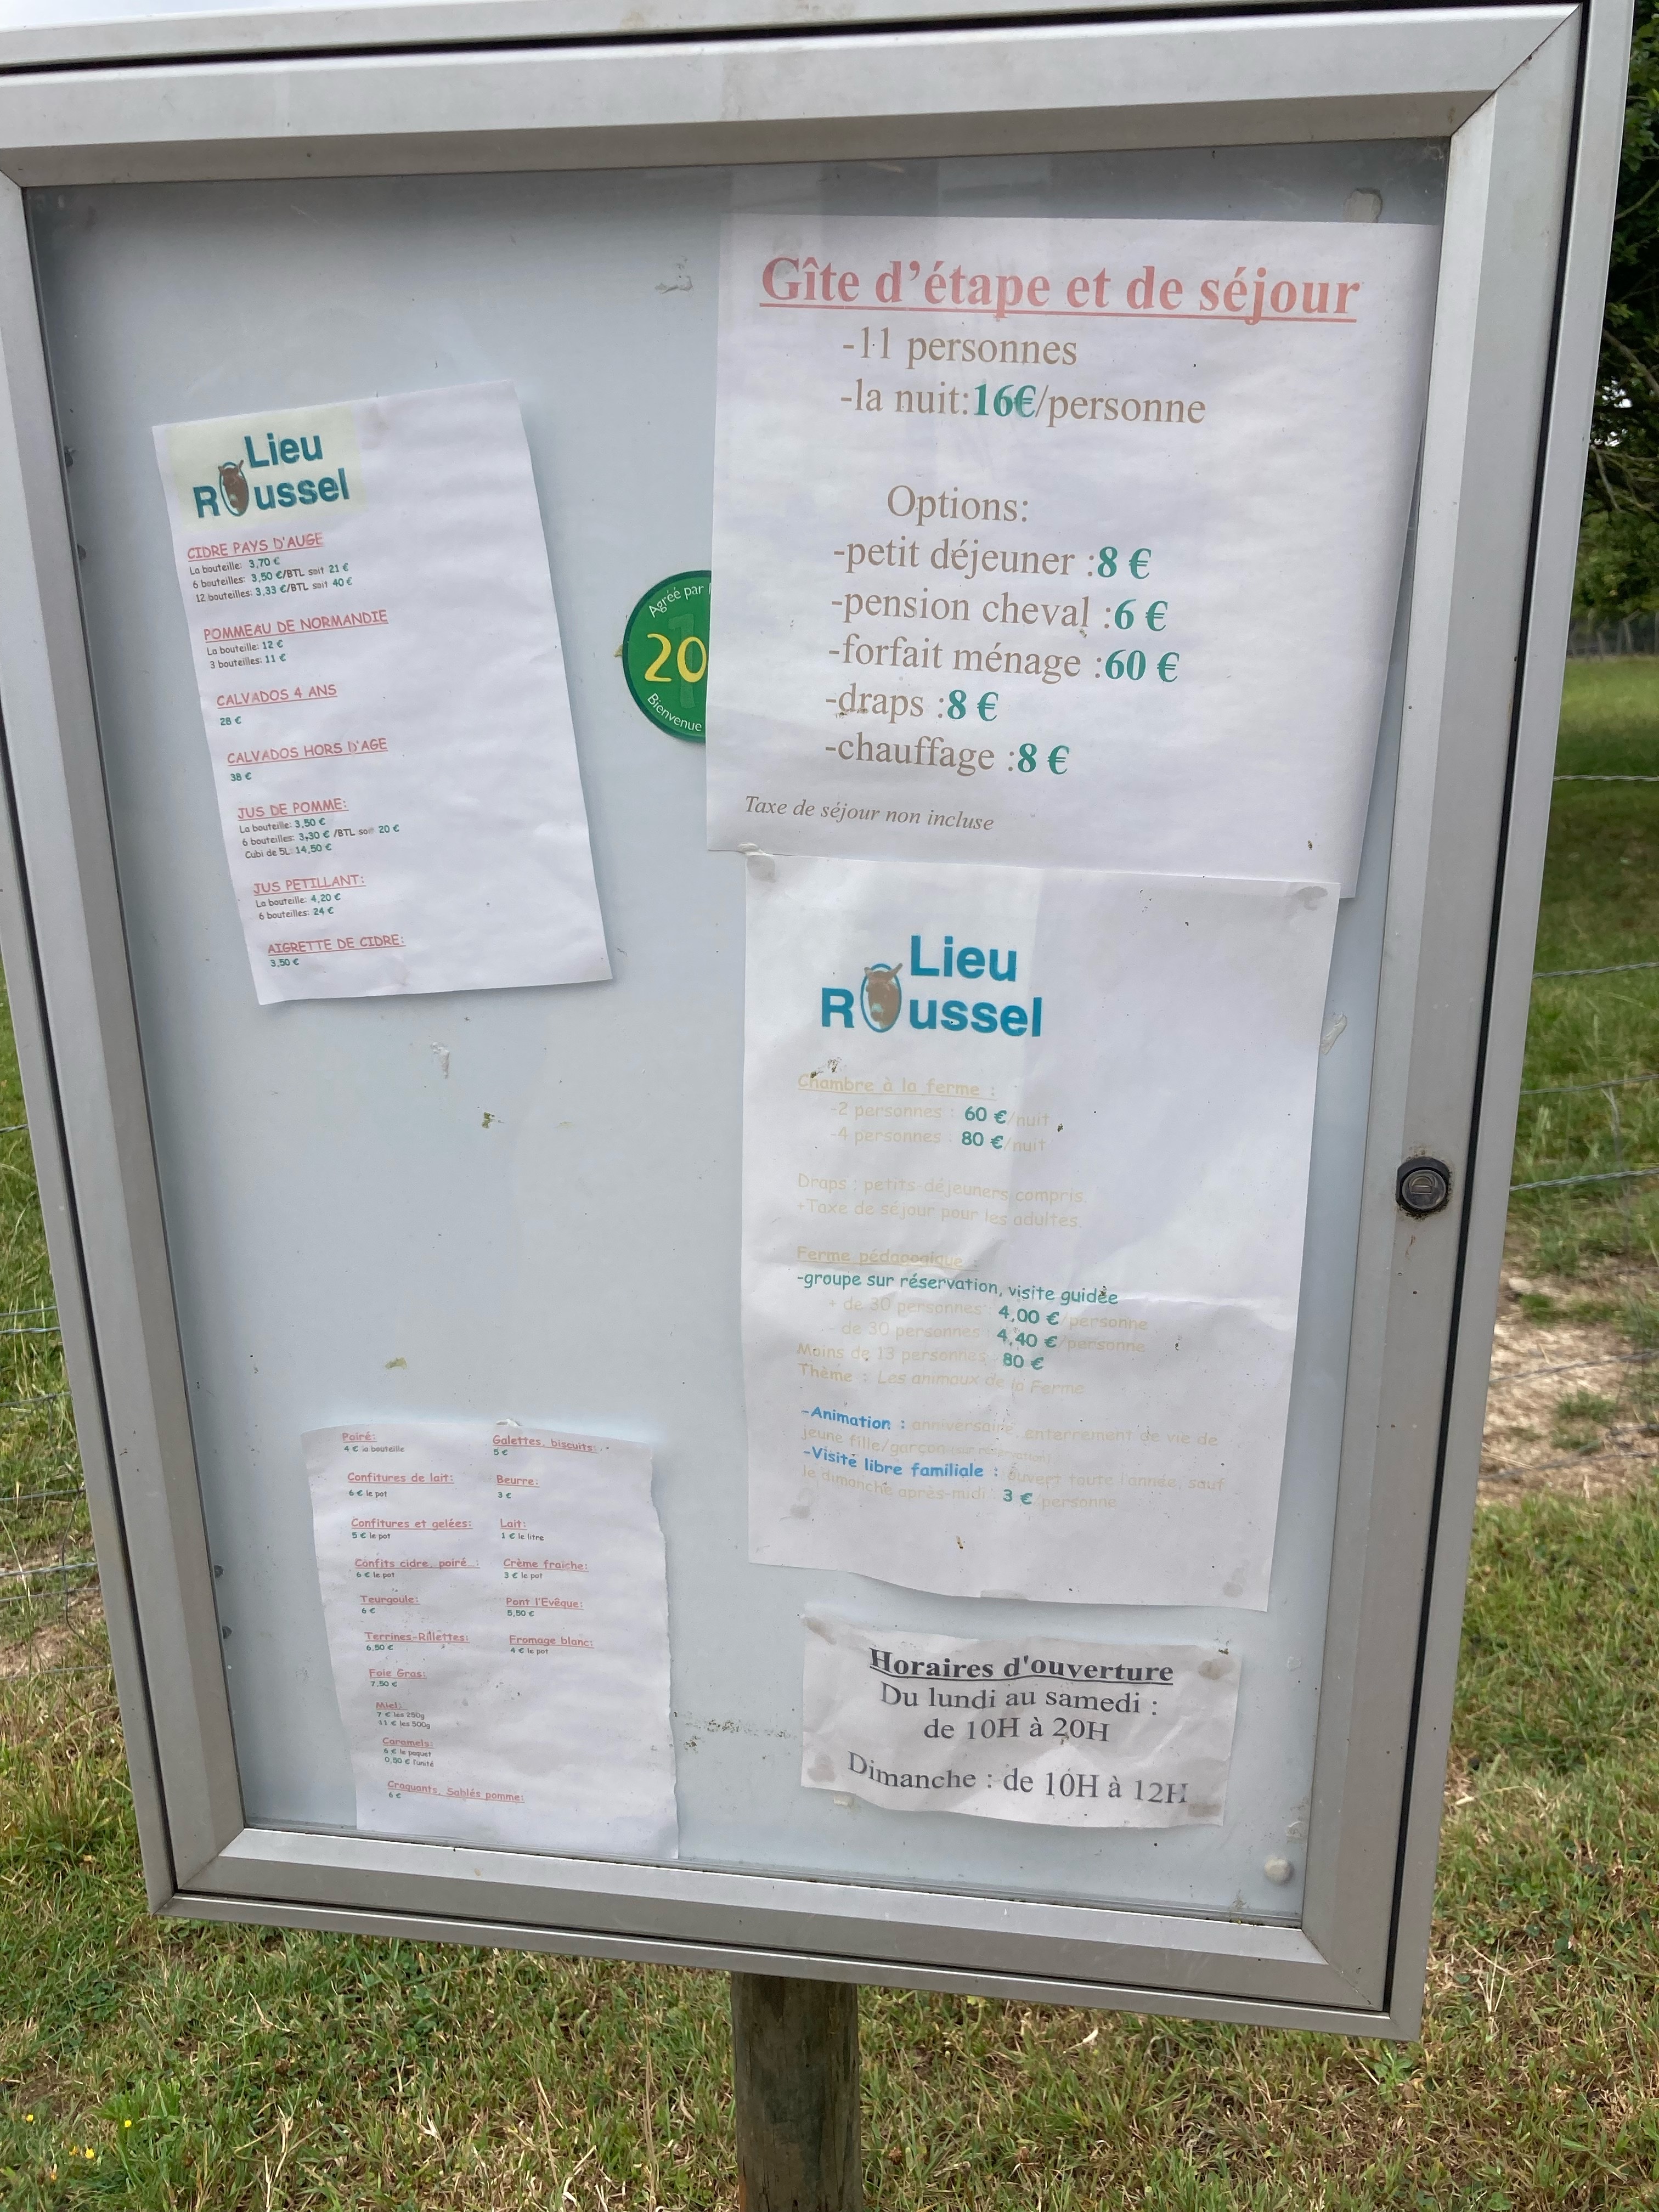 Lieu
Roussel
CIDRE PAYS D'AUGE
La bouteille: 3,70 €
6 bouteilles: 3,50 €/BTL soit 21 €
12 bouteilles: 3,33 €/BTL soit 40 €
POMMEAU DE NORMANDIE
La bouteille: 12 €
3 bouteilles: 11 €
CALVADOS 4 ANS
28 €
CALVADOS HORS D'AGE
38 €
JUS DE POMME:
La bouteille: 3,50 €
6 bouteilles: 3,30 € /BTL soit 20 €
Cubi de 5L: 14,50 €
JUS PETILLANT:
La bouteille: 4,20 €
6 bouteilles: 24 €
AIGRETTE DE CIDRE:
3,50 €
Agréé par
20
Bienvenue
Gîte d'étape et de séjour
-11 personnes
-la nuit:16€/personne
Options:
-petit déjeuner :8 €
-pension cheval :6 €
-forfait ménage :60 €
-draps :8 €
-chauffage :8 €
Taxe de séjour non incluse
Lieu
Roussel
Chambre à la ferme :
-2 personnes : 60 €/nuit
-4 personnes : 80 €/nuit
Draps : petits-déjeuners compris.
+Taxe de séjour pour les adultes.
Ferme pédagogique :
-groupe sur réservation, visite guidée
+ de 30 personnes : 4,00 €/personne
- de 30 personnes : 4,40 €/personne
Moins de 13 personnes : 80 €
Thème : Les animaux de la Ferme
-Animation : anniversaire, enterrement de vie de
jeune fille/garçon
-Visite libre familiale : ouvert toute l'année, sauf
le dimanche après-midi : 3 €/personne
Poiré:
4 € la bouteille
Confitures de lait:
6 € le pot
Confitures et gelées:
5 € le pot
Confits cidre, poiré :
6 € le pot
Teurgoule:
6 €
Terrines-Rillettes:
6,50 €
Foie Gras:
7,50 €
Miel:
7 € les 250g
11 € les 500g
Caramels:
6 € le paquet
0,50 € l'unité
Croquants, Sablés pomme:
6 €
Galettes, biscuits:
5 €
Beurre:
3 €
Lait:
1 € le litre
Crème fraiche:
3 € le pot
Pont l'Evêque:
5,50 €
Fromage blanc:
4 € le pot
Horaires d'ouverture
Du lundi au samedi :
de 10H à 20H
Dimanche : de 10H à 12H